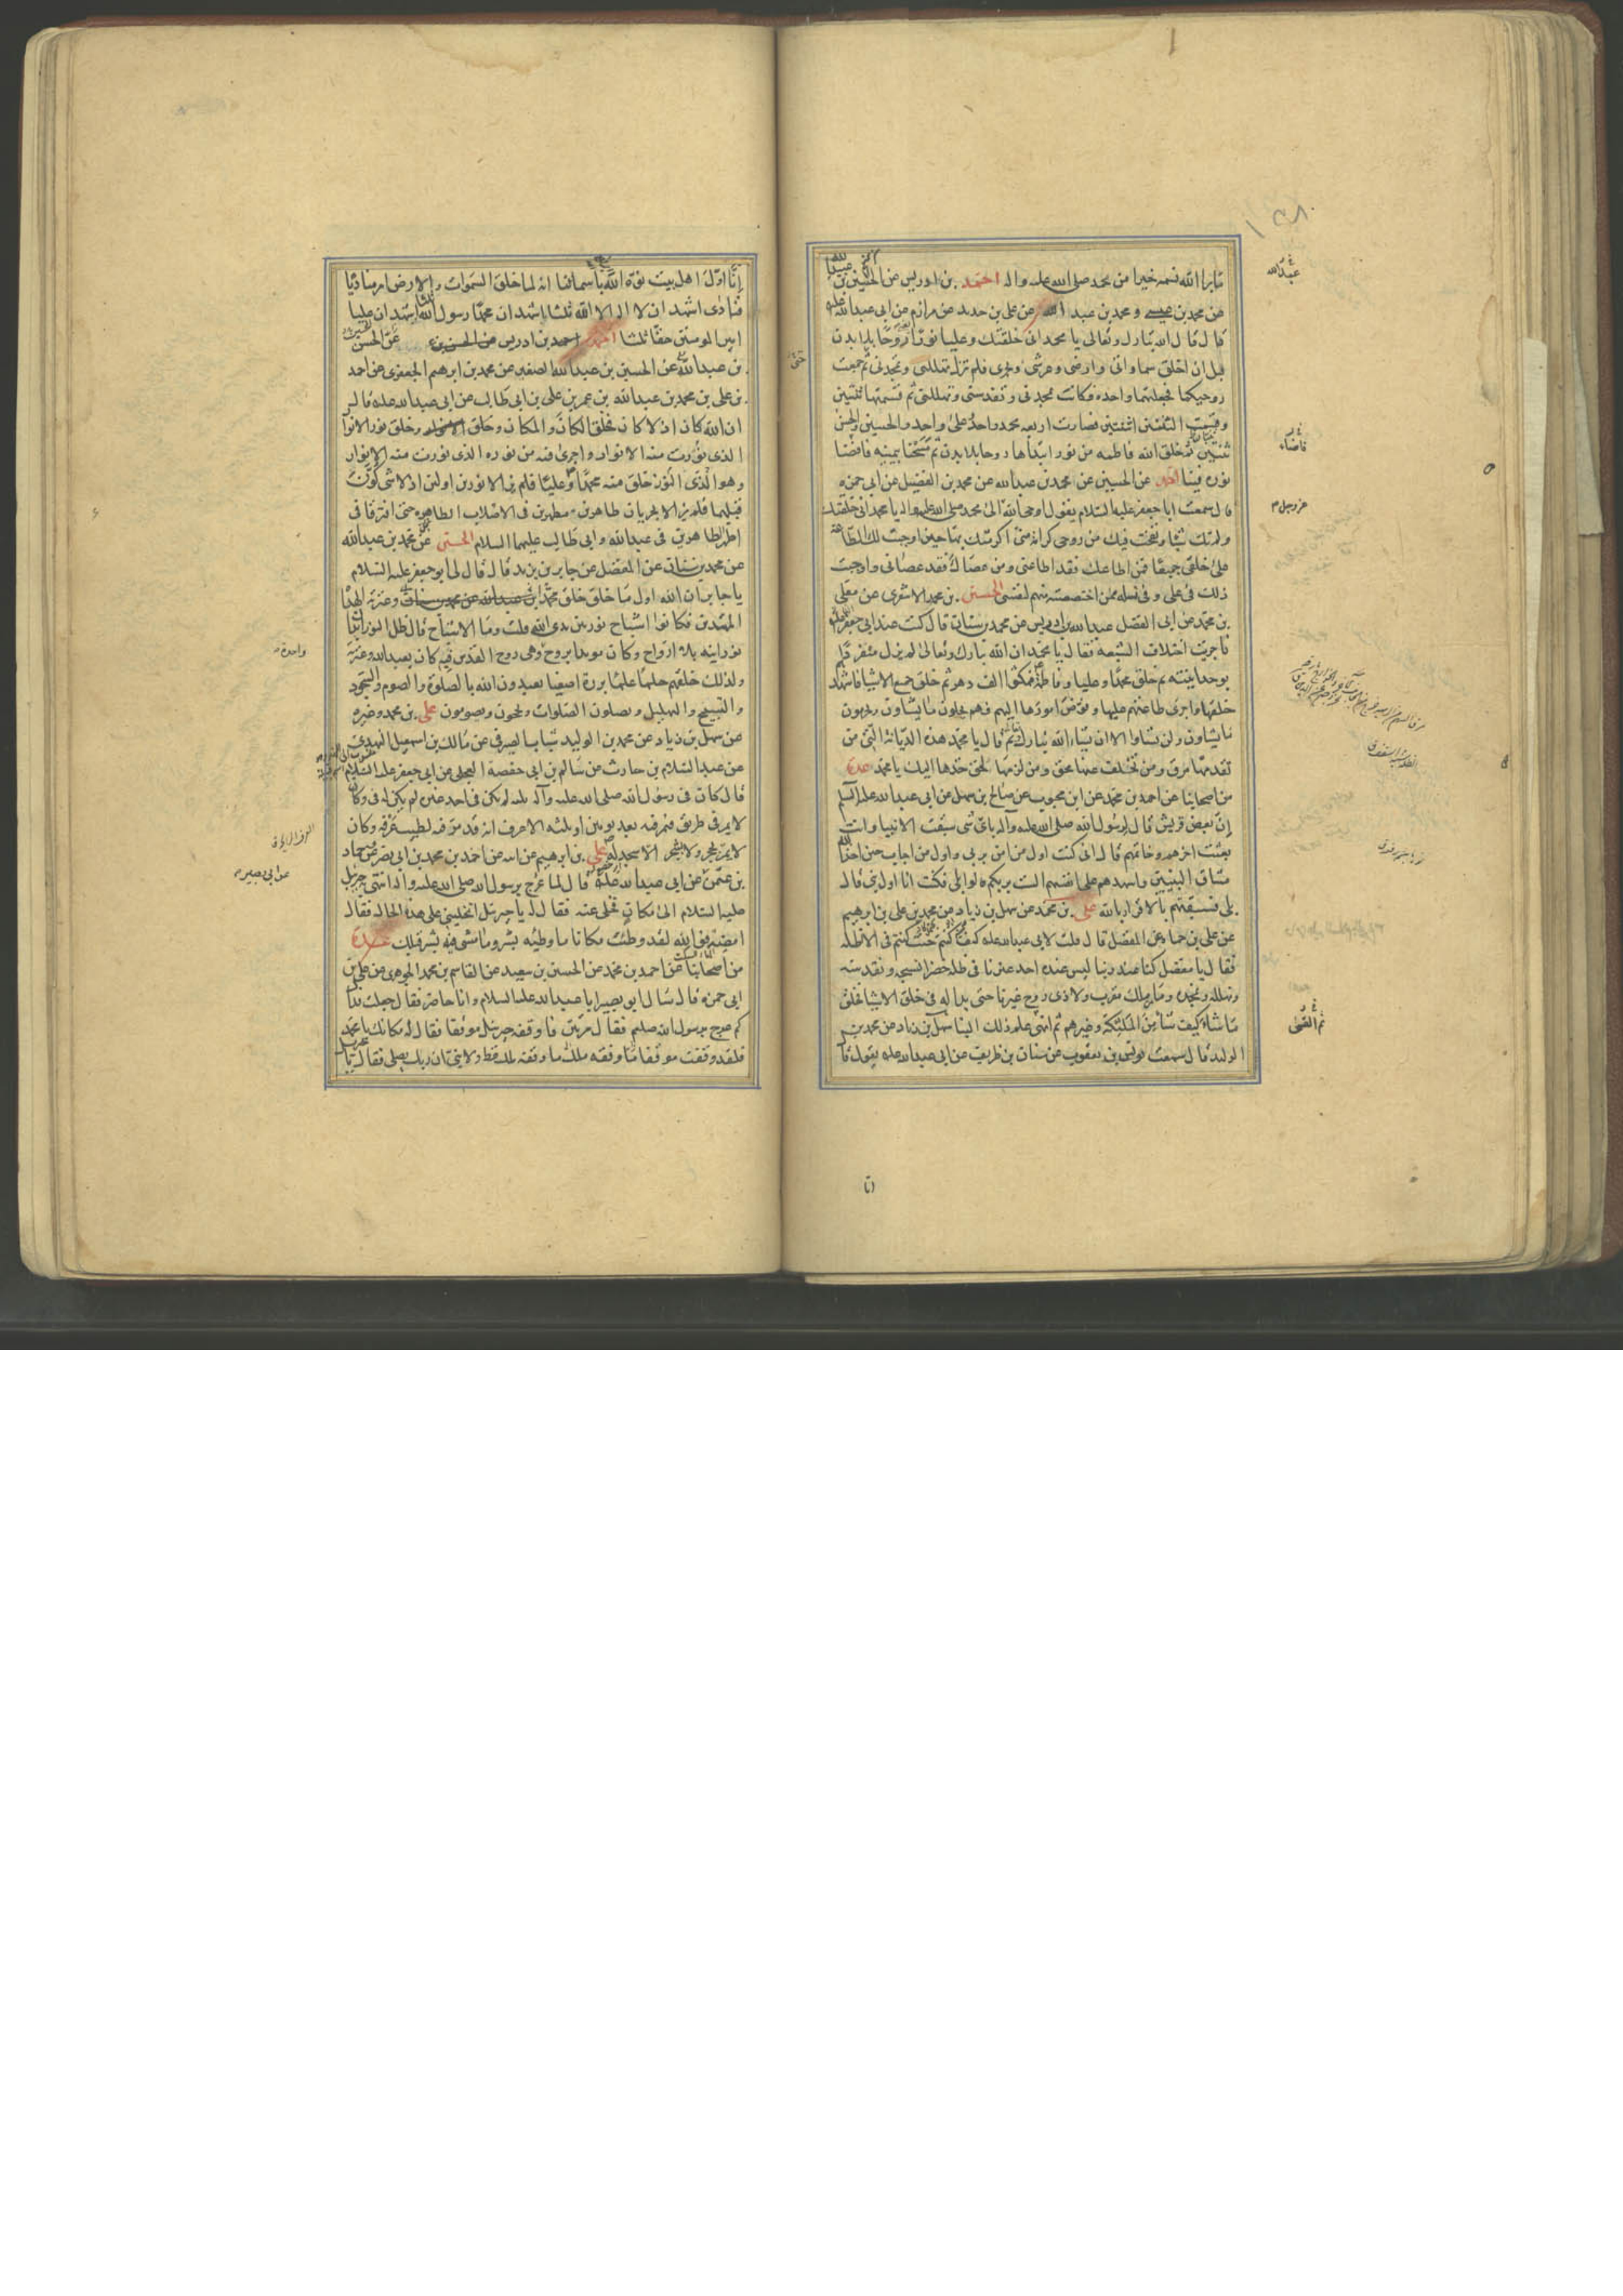 ما برا الله نسمه خيرا من محمد صلى الله عليه واله احمد بن ادريس عن الحسين بن عبد الله
عن محمد بن عيسى و محمد بن عبد الله عن على بن حديد عن مرازم عن ابى عبد الله عليه
قال قال الله تبارك وتعالى يا محمد انى خلقتك وعليا نورا يعنى روحا بلا بدن
قبل ان اخلق سماواتى وارضى وعرشى وبحرى فلم تزل تهللنى وتمجدنى ثم جمعت
روحيكما فجعلتهما واحده فكانت تمجدنى وتقدسنى وتهللنى ثم قسمتها ثنتين
وقسمت الثنتين اثنتين فصارت اربعه محمد واحد وعلى واحد والحسن والحسين
ثنتين ثم خلق الله فاطمه من نور ابتداها روحا بلا بدن ثم مسحنا بيمينه فافضا
نوره فينا احمد عن الحسين عن محمد بن عبد الله عن محمد بن الفضيل عن ابى حمزه
قال سمعت ابا جعفر عليه السلام يقول اوحى الله الى محمد صلى الله عليه واله يا محمد انى خلقتك
ولم تك شيئا ونفخت فيك من روحى كرامة منى اكرمتك بها حين اوجبت لك الطاعة
على خلقى جميعا فمن اطاعك فقد اطاعنى ومن عصاك فقد عصانى واوجبت
ذلك فى على وفى نسله ممن اختصصته منهم لنفسى الحسين بن محمد الاشعرى عن معلى
بن محمد عن ابى الفضل عبد الله بن ادريس عن محمد بن سنان قال كنت عند ابى جعفر
فاجريت اختلاف الشيعه فقال يا محمد ان الله تبارك وتعالى لم يزل متفردا
بوحدانيته ثم خلق محمدا وعليا وفاطمة فمكثوا الف دهر ثم خلق جميع الاشيا فاشهد
خلقها واجرى طاعتهم عليها وفوض امورها اليهم فهم يحلون ما يشاون ويحرمون
ما يشاون ولن يشاوا الا ان يشاء الله تبارك ثم قال يا محمد هذه الديانة التى من
تقدمها مرق ومن تخلف عنها محق ومن لزمها لحق خذها اليك يا محمد عدة
من اصحابنا عن احمد بن محمد عن ابن محبوب عن صالح بن سهل عن ابى عبد الله عليه السلم
ان بعض قريش قال لرسول الله صلى الله عليه وآله باى شى سبقت الانبيا وانت
بعثت اخرهم وخاتمهم قال انى كنت اول من امن بربى واول من اجاب حين اخذ الله
ميثاق النبيين واشهدهم على انفسهم الست بربكم قالوا بلى فكنت انا اول نبى قال
بلى فسبقتهم بالاقرار بالله على بن محمد عن سهل بن زياد عن محمد بن على بن ابرهيم
عن على بن حماد عن المفضل قال قلت لابى عبد الله عليه كيف كنتم حيث كنتم فى الاظله
فقال يا مفضل كنا عند ربنا ليس عنده احد غيرنا فى ظله خضرا نسبحه ونقدسه
ونهلله ونمجده وما من ملك مقرب ولا ذى روح غيرنا حتى بدا له فى خلق الاشيا فخلق
ما شاء كيف شا من الملئكة وغيرهم ثم انهى علم ذلك الينا سهل بن زياد عن محمد بن
الوليد قال سمعت يونس بن يعقوب عن سنان بن طريف عن ابى عبد الله عليه يقول قا
انا
عبد الله
فاضاء
عز وجل
ثم القى
انا اول اهل بيت نوه الله باسمائنا انه لما خلق السموات والارض امر مناديا
فنادى اشهد ان لا اله الا الله ثلثا اشهد ان محمدا رسول الله ثلثا اشهد ان عليا
امير المومنين حقا ثلثا احمد بن ادريس عن الحسين بن عن الحسين
بن عبد الله عن الحسين بن عبد الله الصغير عن محمد بن ابرهيم الجعفرى عن احمد
بن على بن محمد بن عبد الله بن عمر بن على بن ابى طالب عن ابى عبد الله عليه قال
ان الله كان اذ لا كان فخلق الكان والمكان وخلق الانوار وخلق نور الانوار
الذى نورت منه الانوار واجرى فيه من نوره الذى نورت منه الانوار
وهو النور الذى خلق منه محمدا وعليا فلم يزالا نورين اولين اذ لا شى كون
قبلهما فلم يزالا يجريان طاهرين مطهرين فى الاصلاب الطاهره حتى افترقا فى
اطهر طاهرين فى عبد الله وابى طالب عليهما السلام الحسين عن محمد بن عبد الله
عن محمد بن سنان عن المفضل عن جابر بن يزيد قال قال لى ابو جعفر عليه السلام
يا جابر ان الله اول ما خلق خلق محمدا وعترته الهداة
المهتدين فكانوا اشباح نور بين يدى الله قلت وما الاشباح قال ظل النور ابدان
نورانيه بلا ارواح وكان مويدا بروح وهى روح القدس فبه كان يعبد الله وعترته
ولذلك خلقهم حلما علما بررة اصفيا يعبدون الله بالصلوة والصوم والسجود
والتسبيح والتهليل ويصلون الصلوات ويحجون ويصومون على بن محمد وغيره
عن سهل بن زياد عن محمد بن الوليد شباب الصيرفى عن مالك بن اسمعيل النهدى
عن عبد السلام بن حارث عن سالم بن ابى حفصة العجلى عن ابى جعفر عليه السلام
قال كان فى رسول الله صلى الله عليه وآله ثلثه لم يكن فى احد غيره لم يكن له فى وكان
لا يمر فى طريق فيمر فيه بعد يومين او ثلثه الا عرف انه قد مر فيه لطيب عرفه وكان
لا يمر بحجر ولا بشجر الا سجد له على بن ابرهيم عن ابيه عن احمد بن محمد بن ابى نصر عن حماد
بن عثمن عن ابى عبد الله عليه قال لما عرج برسول الله صلى الله عليه واله انتهى جبرئيل
عليه السلام الى مكان فخلى عنه فقال له يا جبرئيل اتخلينى على هذه الحاله فقال
امضه فوالله لقد وطئت مكانا ما وطئه بشر وما مشى فيه بشر قبلك عدة
من اصحابنا عن احمد بن محمد عن الحسين بن سعيد عن القاسم بن محمد الجوهرى عن على بن
ابى حمزه قال سال ابو بصير ابا عبد الله عليه السلام وانا حاضر فقال جعلت فداك
كم عرج برسول الله صلعم فقال مرتين فاوقفه جبرئيل موقفا فقال له مكانك يا محمد
فلقد وقفت موقفا ما وقفه ملك قط ولا نبى ان ربك يصلى فقال يا جبرئيل
واحدة
عن ابى بصير